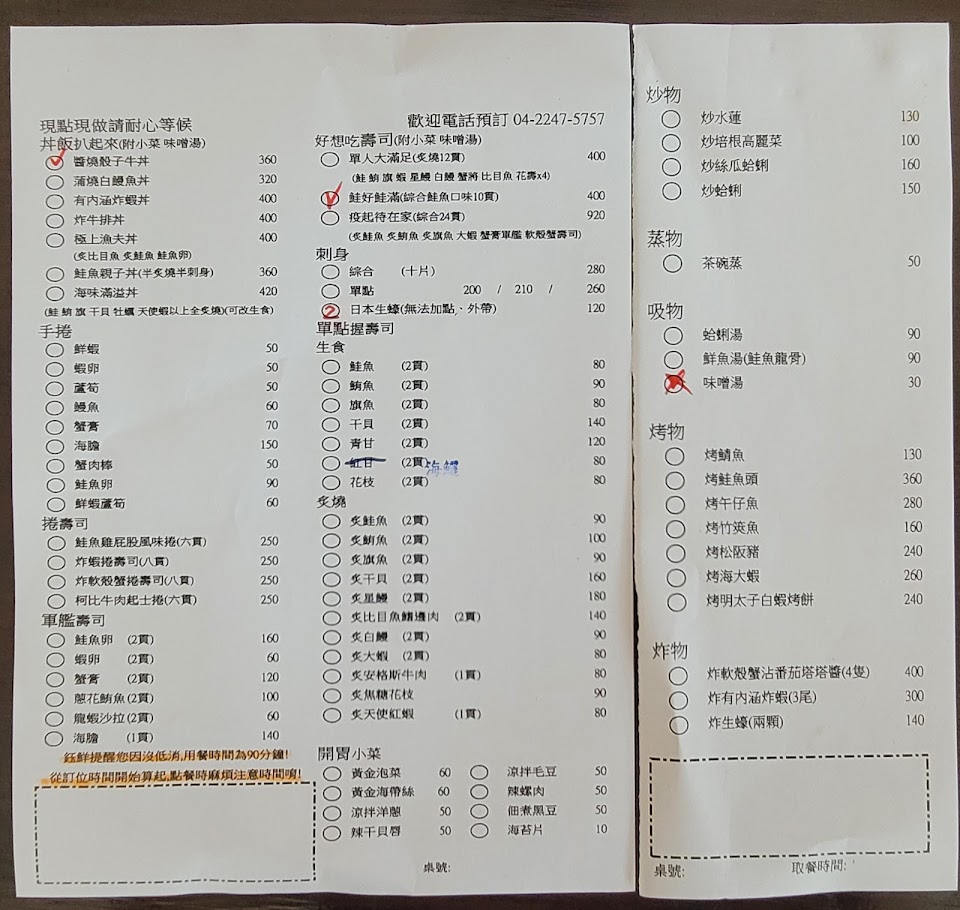 現點現做請耐心等候
丼飯扒起來(附小菜 味噌湯)
醬燒骰子牛丼 360
蒲燒白鰻魚丼 320
有內涵炸蝦丼 400
炸牛排丼 400
極上漁夫丼 400
(炙比目魚 炙鮭魚 鮭魚卵)
鮭魚親子丼(半炙燒半刺身) 360
海味滿溢丼 420
(鮭 鮪 旗 干貝 牡蠣 天使蝦以上全炙燒)(可改生食)
手捲
鮮蝦 50
蝦卵 50
蘆筍 50
鰻魚 60
蟹膏 70
海膽 150
蟹肉棒 50
鮭魚卵 90
鮮蝦蘆筍 60
捲壽司
鮭魚雞屁股風味捲(六貫) 250
炸蝦捲壽司(八貫) 250
炸軟殼蟹捲壽司(八貫) 250
柯比牛肉起士捲(六貫) 250
軍艦壽司
鮭魚卵 (2貫) 160
蝦卵 (2貫) 60
蟹膏 (2貫) 120
蔥花鮪魚(2貫) 100
龍蝦沙拉(2貫) 60
海膽 (1貫) 140
鈺鮮提醒您因沒低消,用餐時間為90分鐘!
從訂位時間開始算起,點餐時麻煩注意時間唷!
歡迎電話預訂 04-2247-5757
好想吃壽司(附小菜 味噌湯)
單人大滿足(炙燒12貫) 400
(鮭 鮪 旗 蝦 星鰻 白鰻 蟹將 比目魚 花壽x4)
鮭好鮭滿(綜合鮭魚口味10貫) 400
疫起待在家(綜合24貫) 920
(炙鮭魚 炙鮪魚 炙旗魚 大蝦 蟹膏軍艦 軟殼蟹壽司)
刺身
綜合 (十片) 280
單點 200 / 210 / 260
2 日本生蠔(無法加點、外帶) 120
單點握壽司
生食
鮭魚 (2貫) 80
鮪魚 (2貫) 90
旗魚 (2貫) 80
干貝 (2貫) 140
青甘 (2貫) 120
紅甘 (2貫) 海鱺 80
花枝 (2貫) 80
炙燒
炙鮭魚 (2貫) 90
炙鮪魚 (2貫) 100
炙旗魚 (2貫) 90
炙干貝 (2貫) 160
炙星鰻 (2貫) 180
炙比目魚鰭邊肉 (2貫) 140
炙白鰻 (2貫) 90
炙大蝦 (2貫) 80
炙安格斯牛肉 (1貫) 80
炙焦糖花枝 90
炙天使紅蝦 (1貫) 80
開胃小菜
黃金泡菜 60 涼拌毛豆 50
黃金海帶絲 60 辣螺肉 50
涼拌洋蔥 50 佃煮黑豆 50
辣干貝唇 50 海苔片 10
桌號:
炒物
炒水蓮 130
炒培根高麗菜 100
炒絲瓜蛤蜊 160
炒蛤蜊 150
蒸物
茶碗蒸 50
吸物
蛤蜊湯 90
鮮魚湯(鮭魚龍骨) 90
味噌湯 30
烤物
烤鯖魚 130
烤鮭魚頭 360
烤午仔魚 280
烤竹筴魚 160
烤松阪豬 240
烤海大蝦 260
烤明太子白蝦烤餅 240
炸物
炸軟殼蟹沾番茄塔塔醬(4隻) 400
炸有內涵炸蝦(3尾) 300
炸生蠔(兩顆) 140
桌號: 取餐時間: